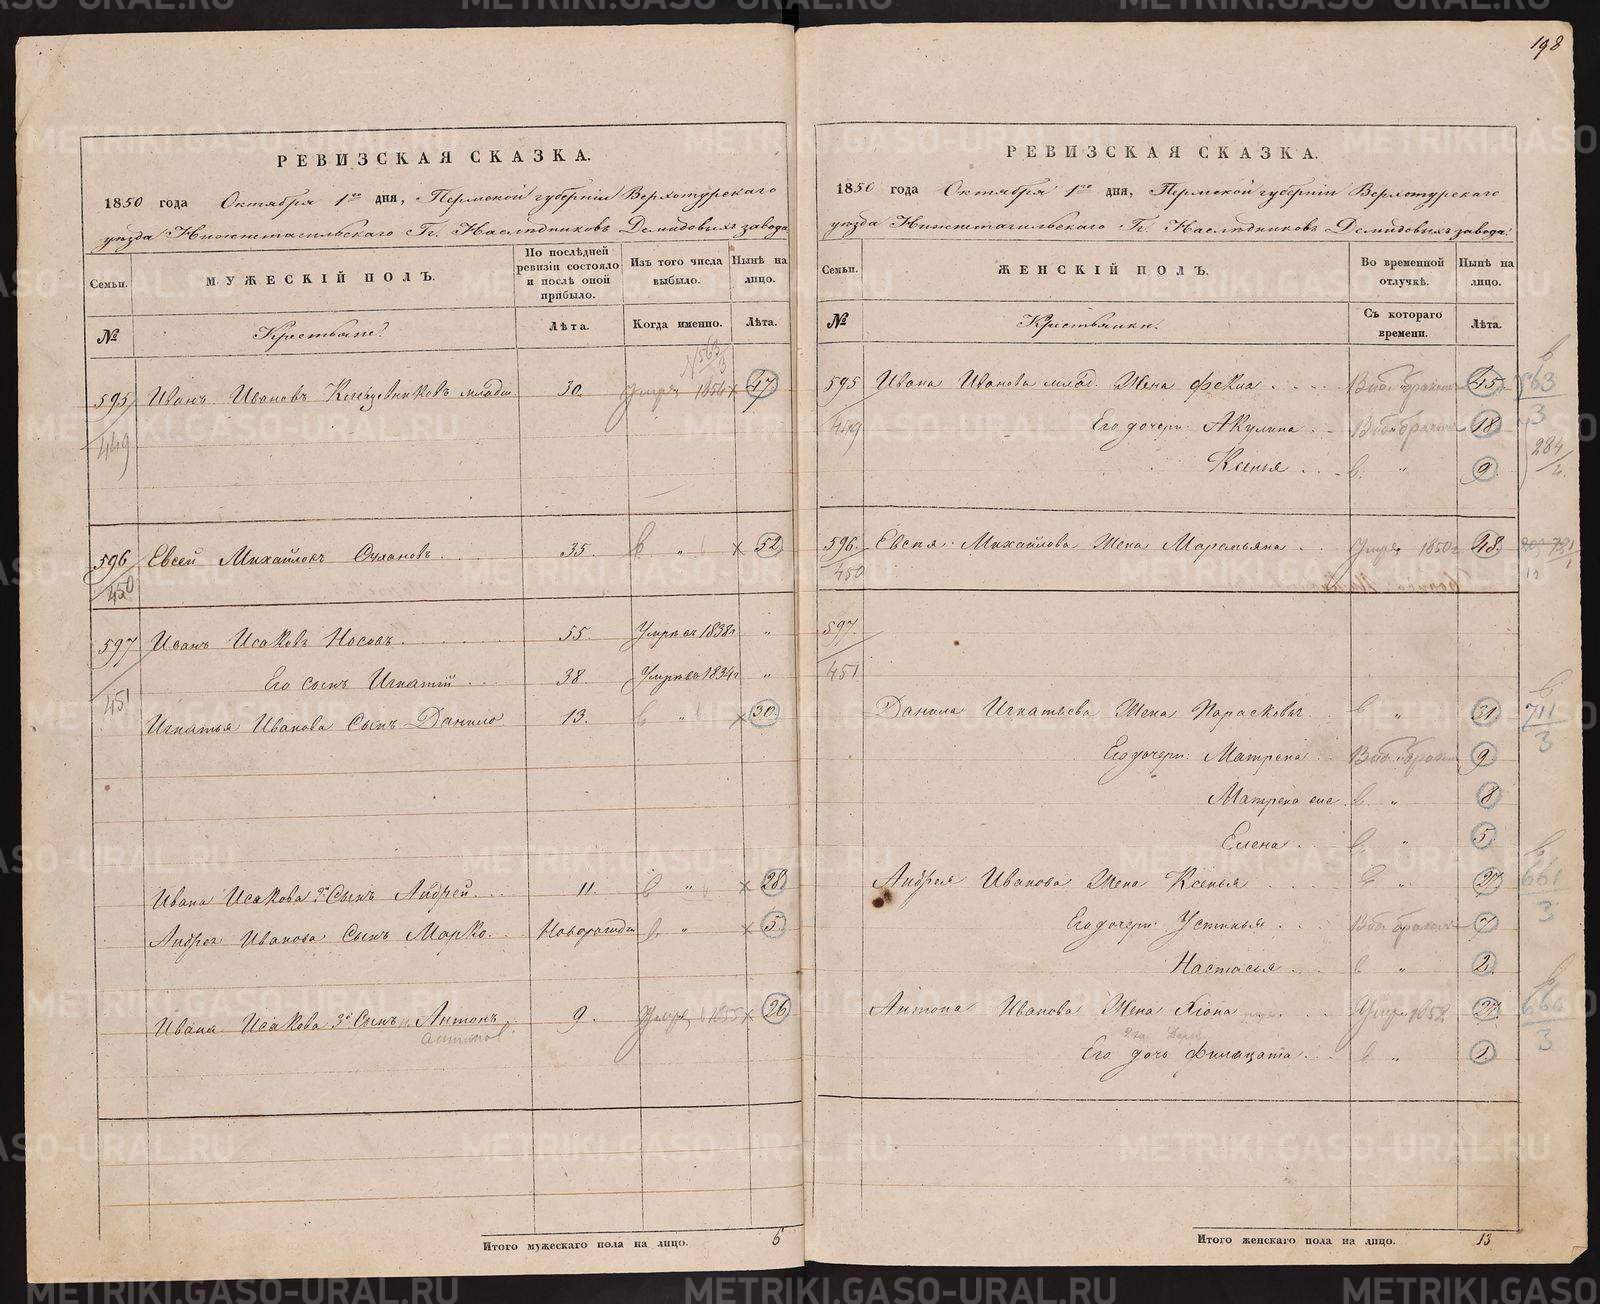 198
РЕВИЗСКАЯ СКАЗКА.
1850 года Октября 1го дня, Пермской губерніи Верхотурскаго
уѣзда Нижнетагильскаго Гг. Наслѣдниковъ Демидовыхъ завода
Семьи.
МУЖЕСКІЙ ПОЛЪ.
По послѣдней ревизіи состояло и послѣ оной прибыло.
Изъ того числа выбыло.
Нынѣ на лицо.
№
Крестьяне.
Лѣта.
Когда именно.
Лѣта.
№ 563/3
595 Иванъ Ивановъ младш. 30. Умре 1854 × 47
449
596 Евсей Михайловъ 35. в „ × 52
450
597 Иванъ Исаковъ Носовъ. 55. Умре въ 1838г „
Его сынъ Игнатій 38. Умре въ 1834г „
451
Игнатья Иванова Сынъ Данило 13. в „ × 30
Ивана Исакова 2й Сынъ Андрей 11 в „ × 28
Андрея Иванова Сынъ Марко. Новорожден в „ × 5
Ивана Исакова 3й Сынъ Антонъ 9. Умре 1855 × 26
Антипа
Итого мужескаго пола на лицо. 6
РЕВИЗСКАЯ СКАЗКА.
1850 года Октября 1го дня, Пермской губерніи Верхотурскаго
уѣзда Нижнетагильскаго Гг. Наслѣдниковъ Демидовыхъ завода.
Семьи.
ЖЕНСКІЙ ПОЛЪ.
Во временной отлучкѣ.
Нынѣ на лицо.
№
Крестьянки.
Съ котораго времени.
Лѣта.
595 Ивана Иванова млад. Жена Фекла 45 563/3
449 Его дочери: Акулина 18
Ксенья в. „ 9. 284/2
596. Евсея Михайлова Жена Маремьяна Умре 1850г 48 721/1
450
597
451
Данила Игнатьева Жена Парасковья в „ 31 711/3
Его дочери: Матрена 9
Матрена еще в. „ 8
Елена в. „ 5
Андрея Иванова Жена Ксенья в „ 27 661/3
Его дочери: Устинья 7
Настасья в „ 2
Антона Иванова Жена Хіона Умре 1858 27 666/3
Его дочь Филицата в „ 1
Итого женскаго пола на лицо. 13
METRIKI.GASO-URAL.RU